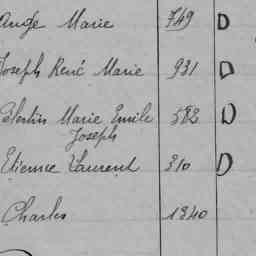 Ange Marie 749 D
Joseph René Marie 931 D
Célestin Marie Emile 582 D
Joseph
Etienne Laurent 310 D
Charles 1340